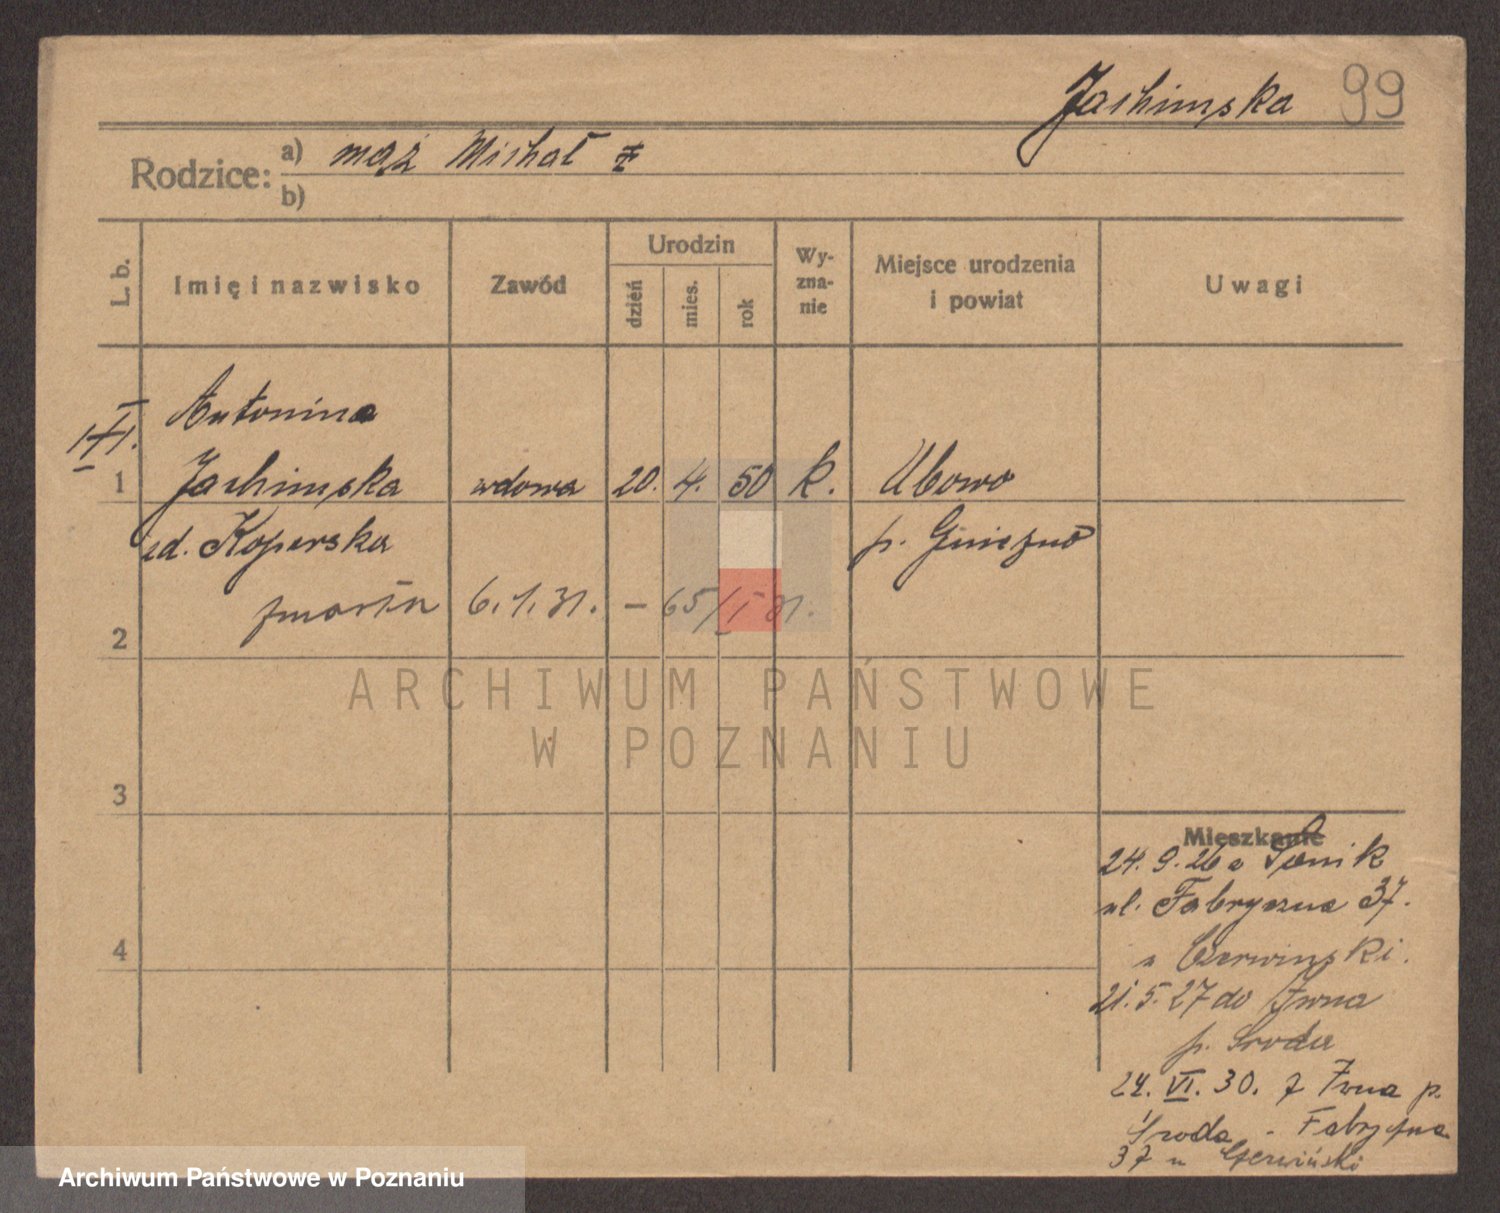 Jachimska 99
Rodzice: a) mąż Michał ‡
b)
L. b. Imię i nazwisko Zawód Urodzin dzień mies. rok Wyznanie Miejsce urodzenia i powiat Uwagi
Antonina
1 Jachimska wdowa 20. 4. 50 k. Ubowo
zd. Koperska p. Gniezno
zmarła 6.1.31. – 65/I 31.
2
ARCHIWUM PAŃSTWOWE
W POZNANIU
3
Mieszkanie
24. 9. 26 z
ul. Fabryczna 37.
4
u Czerwinski.
21. 5. 27 do Iwna
p. Sroda
24. VI. 30. z Iwna p.
Sroda - Fabryczna
37 u Czerwiński
Archiwum Państwowe w Poznaniu